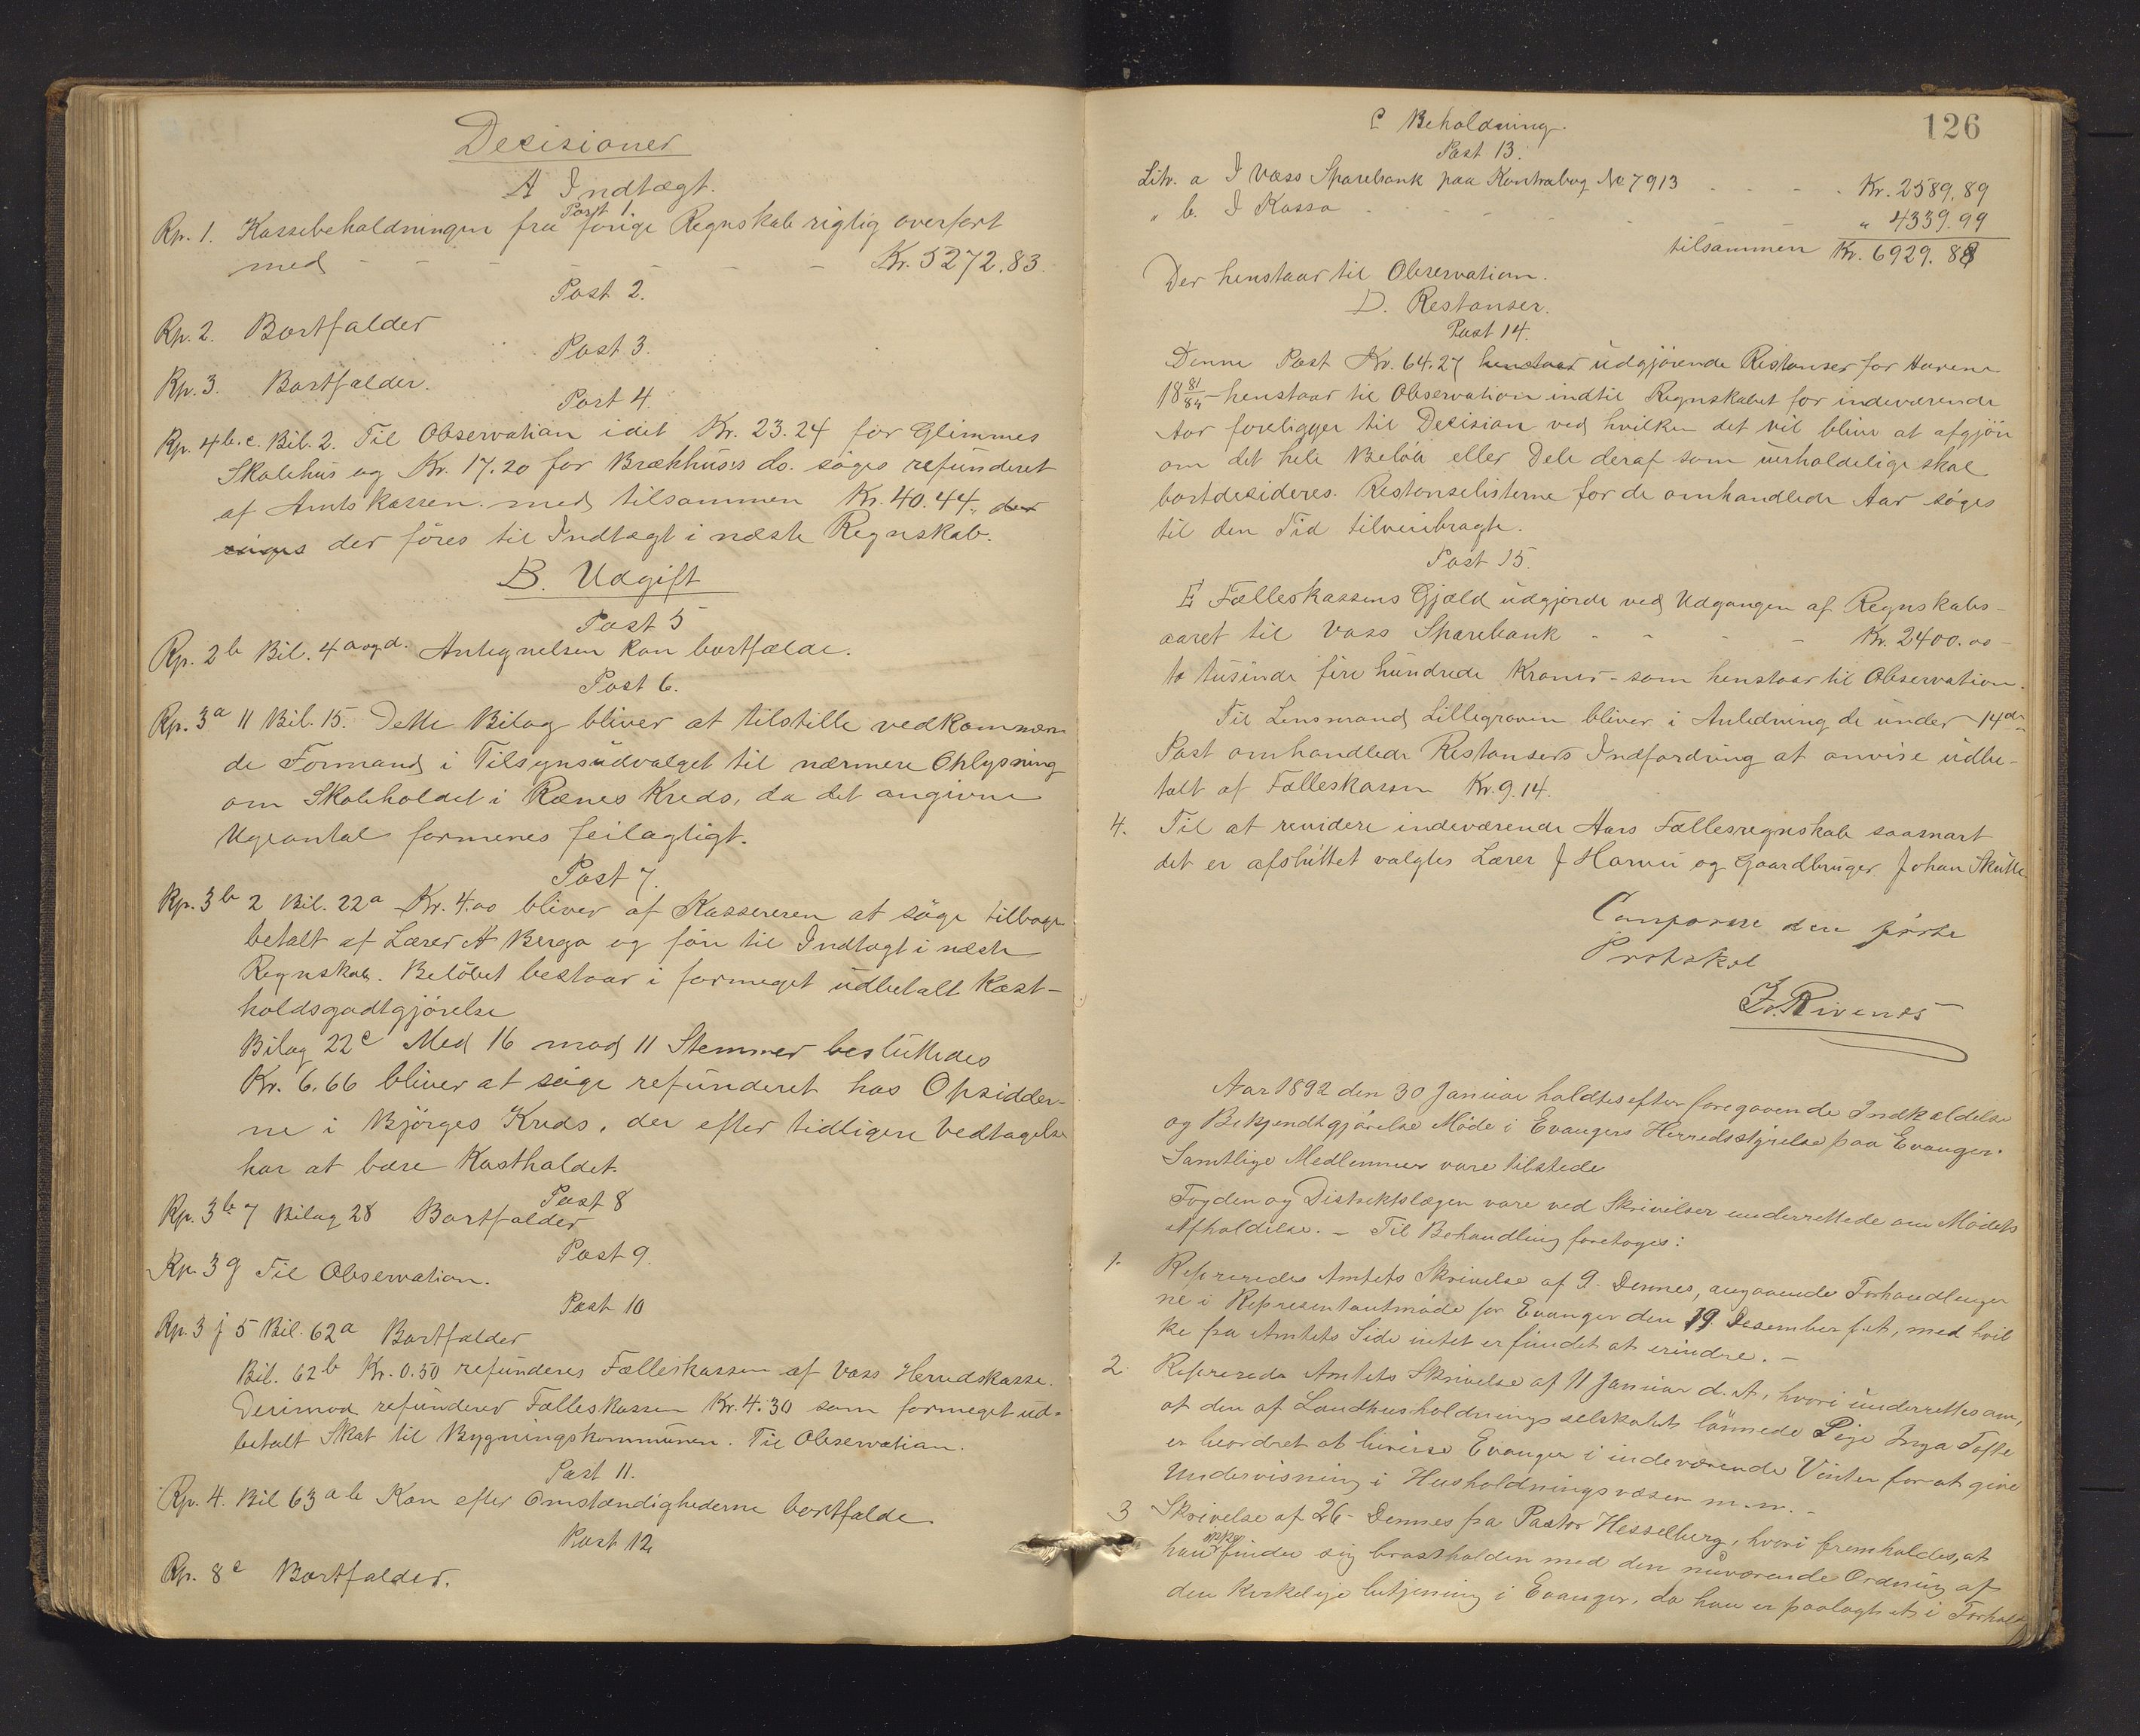 Decisioner
A Indtægt.
Post 1.
Rp. 1. Kassebeholdningen fra forige Regnskab rigtig overført
med - - - - - - Kr. 5272.83.
Post 2.
Rp. 2. Bortfalder
Post 3.
Rp. 3. Bortfalder.
Post 4.
Rp. 4 b.c. Bil. 2. Til Observation idet Kr. 23.24 for Glimmes
Skolehus og Kr. 17.20 for Brækhus's do. søges refunderet
af Amtskassen med tilsammen Kr. 40.44, der
søges der föres til Indtægt i næste Regnskab.
B. Udgift
Post 5
Rp. 2 b Bil. 4 a og d. Antegnelsen kan bortfalde.
Post 6.
Rp. 3 a 11 Bil. 15. Dette Bilag bliver at tilstille vedkommen
de Formand i Tilsynsudvalget til nærmere Oplysning
om Skoleholdet i Rænes Kreds, da det angivne
Ugeantal formenes feilagtigt.
Post 7.
Rp. 3 b 2 Bil. 22 a Kr. 4.00 bliver af Kassereren at søge tilbage
betalt af Lærer A Berge og före til Indtægt i næste
Regnskab. Belöbet bestaar i formeget udbetalt Kost-
holdsgodtgjörelse
Bilag 22 c Med 16 mod 11 Stemmer besluttedes
Kr. 6.66 bliver at söge refunderet hos Opsidder-
ne i Bjørges Kreds, der efter tidligere Vedtagelse
har at bære Kostholdet.
Post 8
Rp. 3 b 7 Bilag 28 Bortfalder
Post 9.
Rp. 3 g Til Observation.
Post 10
Rp. 3 j 5 Bil. 62 a Bortfalder
Bil. 62 b Kr. 0.50 refunderes Fælleskassen af Voss Herredskasse.
Derimod refunderer Fælleskassen Kr. 4.30 som formeget ud-
betalt Skat til Bygningskommunen. Til Observation.
Post 11.
Rp. 4. Bil 63 a b Kan efter Omstændighederne bortfalde
Post 12
Rp. 8 c Bortfalder.
126
C Beholdning.
Post 13.
Litr. a I Voss Sparebank paa Kontrabog No 7913 - - - - Kr. 2589.89
" b. I Kassa - - - - - - " 4339.99
tilsammen Kr. 6929.88
Der henstaar til Observation.
D. Restanser.
Post 14.
Denne Post Kr. 64.27 henstaar udgjörende Restanser for Aarene
18 81/84 - henstaar til Observation indtil Regnskabet for indeværende
Aar foreligger til Decision ved hvilken det vil blive at afgjöre
om det hele Belöb eller Dele deraf som uerholdelige skal
bortdesideres. Restanselisterne for de omhandlede Aar søges
til den Tid tilveiebragte.
Post 15.
E Fælleskassens Gjæld udgjorde ved Udgangen af Regnskabs-
aaret til Voss Sparebank - - - - Kr. 2400.00 -
to tusinde fire hundrede Kroner - som henstaar til Observation.
Til Lensmand Lillegraven bliver i Anledning de under 14de
Post omhandlede Restansers Indfordring at anvise udbe-
talt af Fælleskassen Kr. 9.14.
4. Til at revidere indeværende Aars Fællesregnskab saasnart
det er afsluttet valgtes Lærer J Horvei og Gaardbruger Johan Skutle
Comparere den förste
Protokol
Iv. Rivenes
Aar 1892 den 30 Januar holdtes efter foregaaende Indkaldelse
og Bekjendtgjörelse Möde i Evangers Herredsstyrelse paa Evanger.
Samtlige Medlemmer vare tilstede
Fogden og Distriktslægen vare ved Skrivelser underrettede om Mödets
Afholdelse. - Til Behandling foretoges:
1. Refereredes Amtets Skrivelse af 9. Dennes, angaaende Forhandlinger
ne i Representantmöde for Evanger den 19 Desember f.A, med hvil
ke fra Amtets Side intet er fundet at erindre. -
2. Refereredes Amtets Skrivelse af 11 Januar d. A, hvori underrettes om,
at den af Landhusholdningsselskabet lönnede Pige Inga Tofte
er beordret at bereise Evanger i indeværende Vinter for at give
Undervisning i Husholdningsvæsen m.m. -
3 Skrivelse af 26 - Dennes fra Pastor Hesselberg, hvori fremholdes, at
han ikke finder sig brostholden med den nuværende Ordning af
den kirkelige betjening i Evanger, da han er paalagt at i Forhold